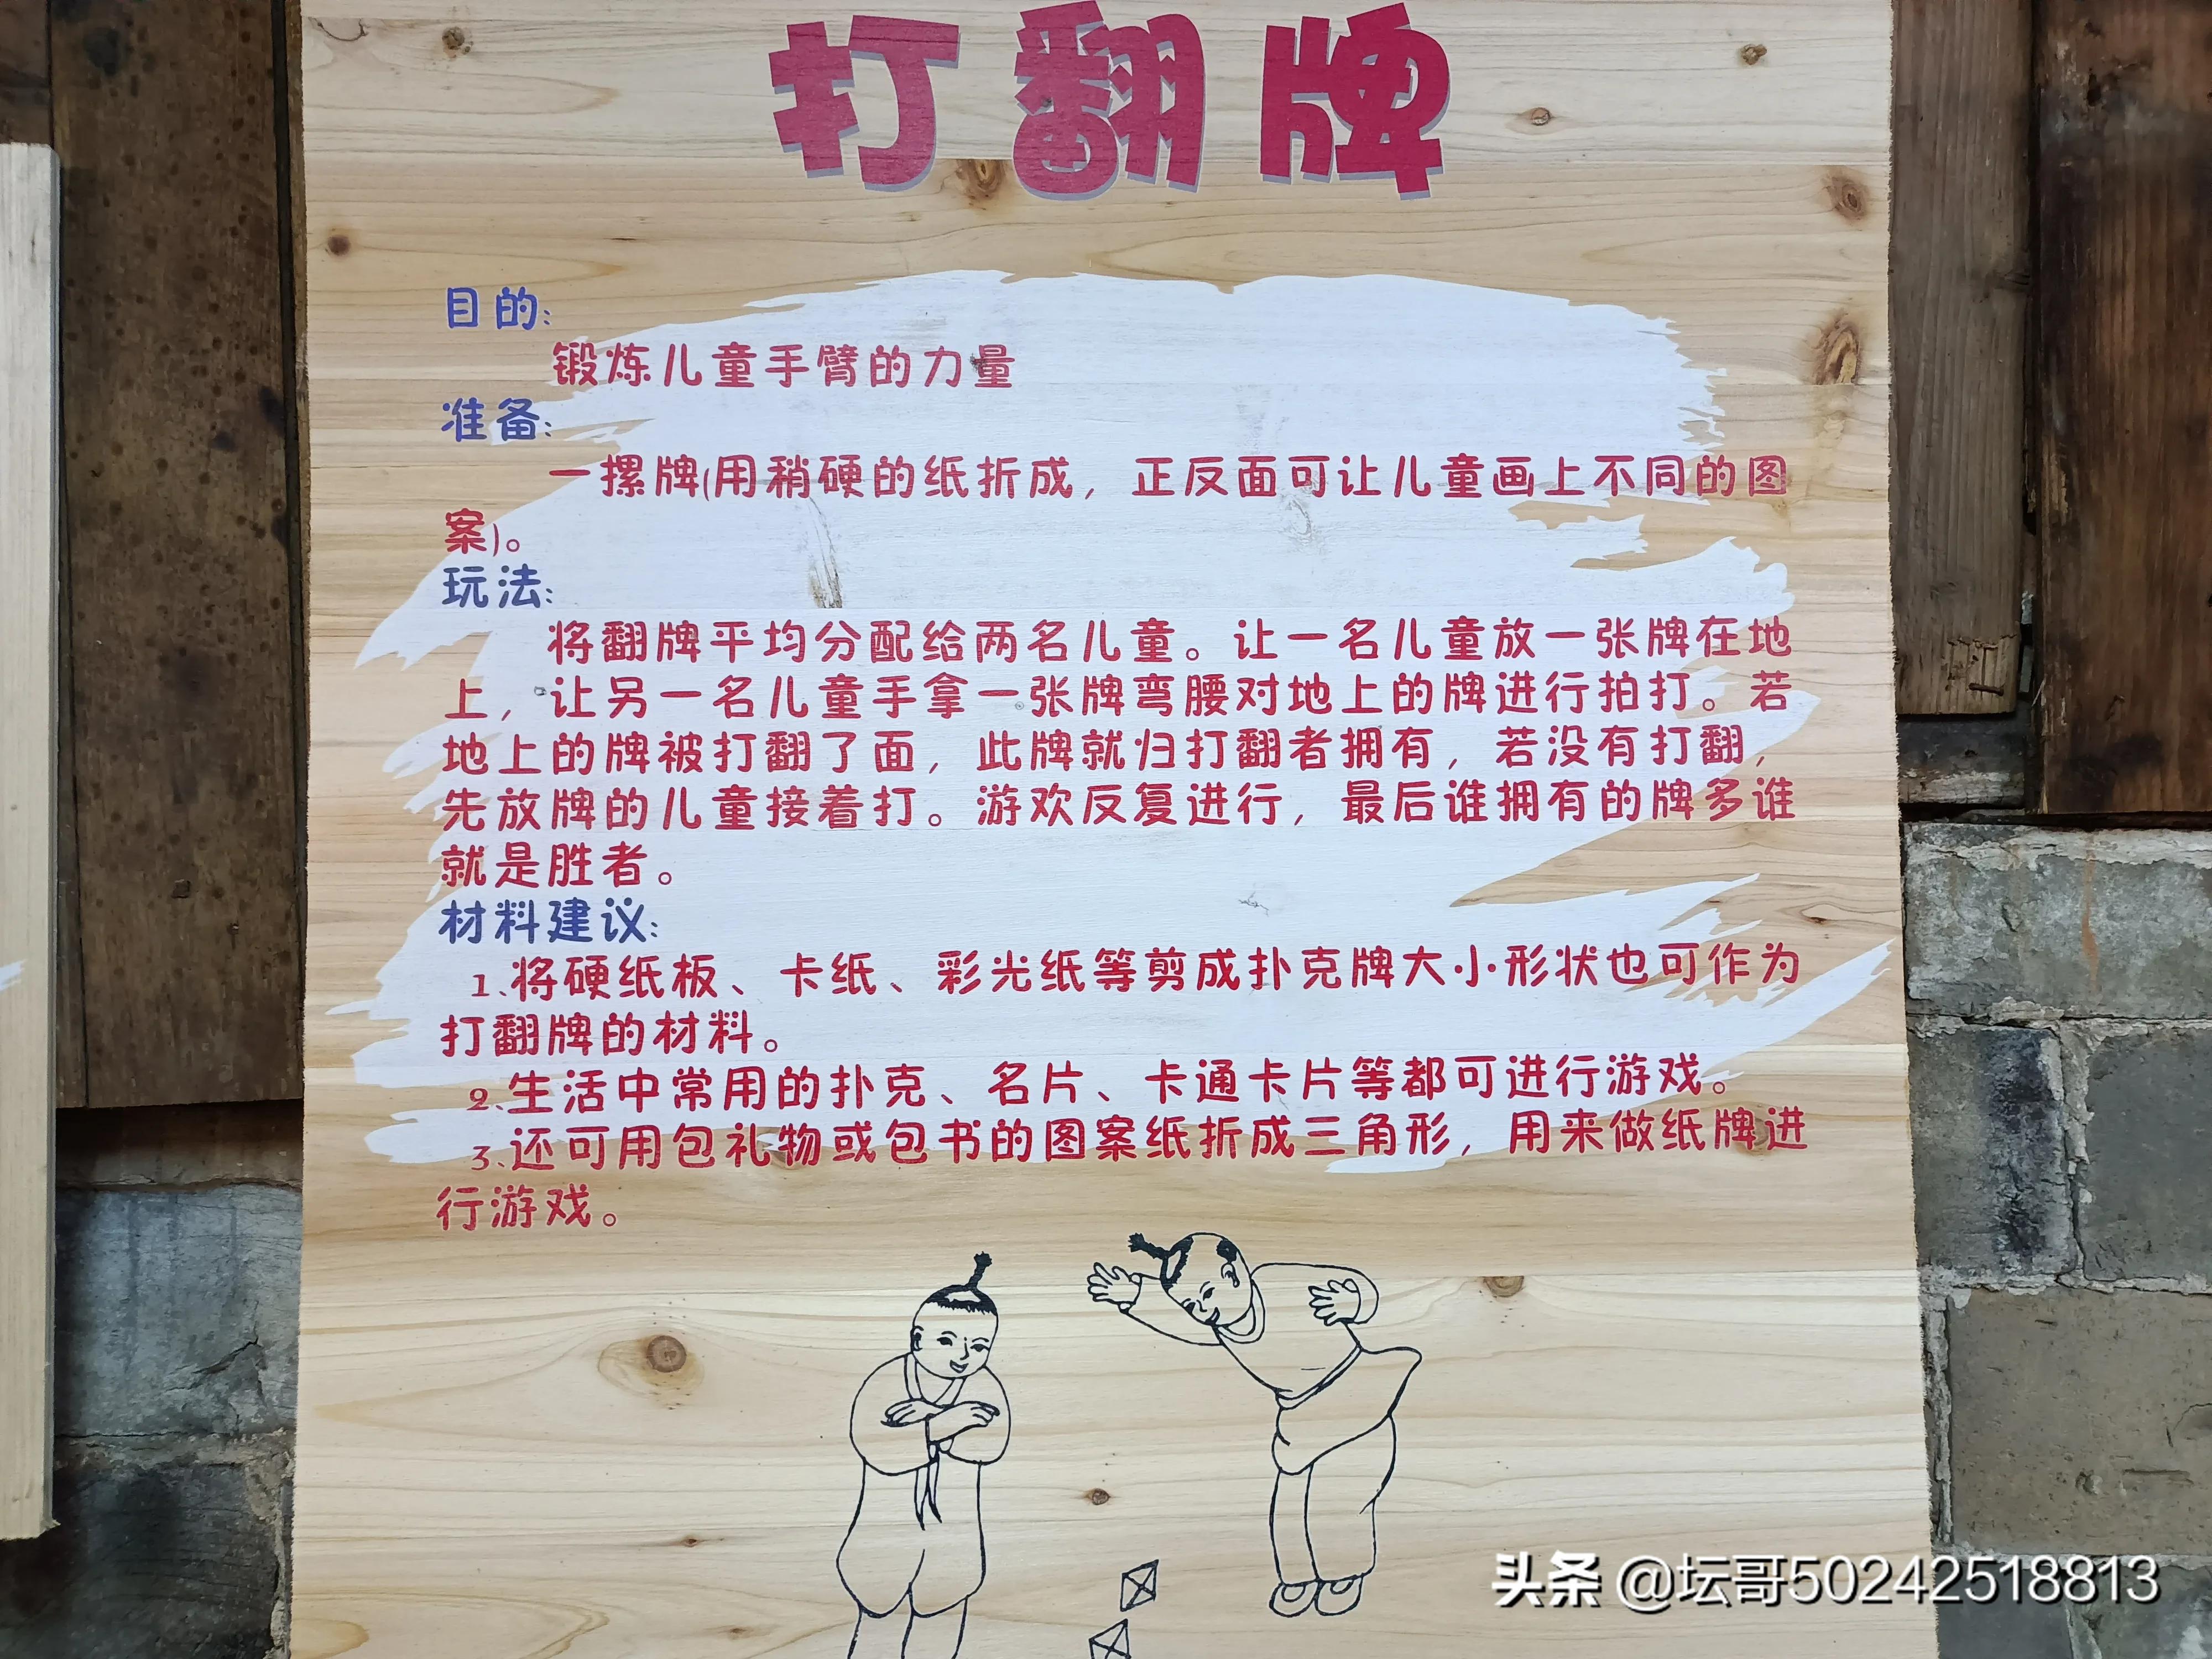 打翻牌
目的:
锻炼儿童手臂的力量
准备:
一摞牌(用稍硬的纸折成，正反面可让儿童画上不同的图
案)。
玩法:
将翻牌平均分配给两名儿童。让一名儿童放一张牌在地
上，让另一名儿童手拿一张牌弯腰对地上的牌进行拍打。若
地上的牌被打翻了面，此牌就归打翻者拥有，若没有打翻，
先放牌的儿童接着打。游欢反复进行，最后谁拥有的牌多谁
就是胜者。
材料建议:
1、将硬纸板、卡纸、彩光纸等剪成扑克牌大小形状也可作为
打翻牌的材料。
2、生活中常用的扑克、名片、卡通卡片等都可进行游戏。
3、还可用包礼物或包书的图案纸折成三角形，用来做纸牌进
行游戏。
头条 @坛哥50242518813